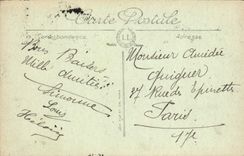 Carte Postale
Correspondance
Adresse
LL
Bons Baisers
Mille Amitiés
Simonne
Monsieur Amédée
Quiquer
87 Rue des Epinettes
Paris
17e